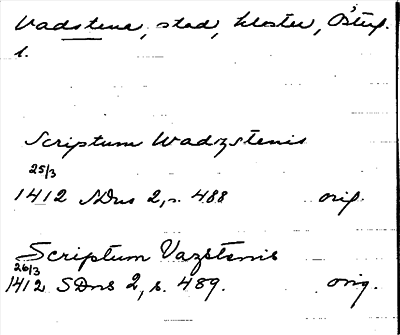 Vadstena, stad, kloster, Östg.
l.
Scriptum Wadzstenis
25/3
1412 SDns 2, s. 488 orig.
Scriptum Vazstenis
26/3
1412 SDns 2, s. 489. orig.